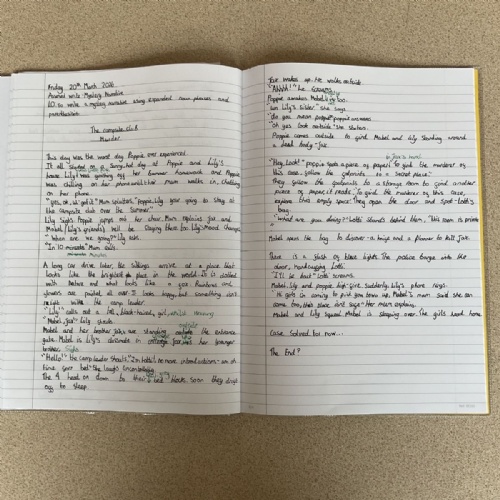 Friday 20th March 2026
Around write Mystery Narrative
LO to write a mystery narrative using expanded noun phrases and
The campsite club
Murder
This day was the worst day Poppie ever experienced.
It all started on a sunny hot day at Poppie and Lily's
house. Lily was her Summer homework and Poppie
was chilling on her phone until their mum walks in, chatting
on her phone.
"yes, ok, will do it" Mum "Poppie, Lily your going to stay at
the campsite club over the Summer"
Lily Sighs Poppie jumps out her chair. Mum explains Jax and
Mabel (Lily's friends) will be staying there too. Lily's mood changes
"When are we going?" Lily asks.
"In 10 minutes" Mum
minutes
A long car drive later, the siblings arrive at a place that
looks like the brightest place in the world. It is dotted
with Nature and what looks like a Rainbows and
flowers are painted all over. It looks happy, but something isn't
right with the camp leader.
"Lily" calls out a tall, black-haired, girl, whilst
"Mabel, Jax" Lily shouts.
Mabel and her brother Jax are standing outside the entrance
gate. Mabel is Lily's classmate in Jax is her younger
brother.
"Hello!" the camp leader shouts. "I'm Lotti, no more introductions - am oh
time your bed" she laughs
The 4 head on down to their bed block, soon they drift
off to sleep.
Jax wakes up. He walks outside.
"Ahhhh!" he
Poppie awakes Mabel too.
"Im Lily's sister" she says.
"do you mean poppie" poppie answers
"oh yes look outside" she stutters.
Poppie comes outside to find Mabel and Lily standing around
a dead body - Jax.
in Jax's hand
"Hey, Look!" poppie sees a piece of paper. "To find the murderer of
this case, follow the footprints to a secret place."
They follow the footprints to a storage room to find another
piece of paper, it reads, "To find the murderer of this case,
explore this empty space." They open the door and spot Lotti's
bag.
"What are you doing?" Lotti stands behind them, "This room is private
"
Mabel opens the bag to discover a knife and a planner to kill Jax.
There is a flash of blue lights. The police barge into the
door, handcuffing Lotti.
"I'll be back" Lotti screams.
Mabel, Lily and poppie high-five. Suddenly, Lily's phone rings.
"Hi girls im coming to pick you both up, Mabel's mum said she can
come too, that's place isn't safe" Her mum explains.
Mabel and Lily squeal. Mabel is sleeping over. The girls head home.
Case Solved for now...
The End?